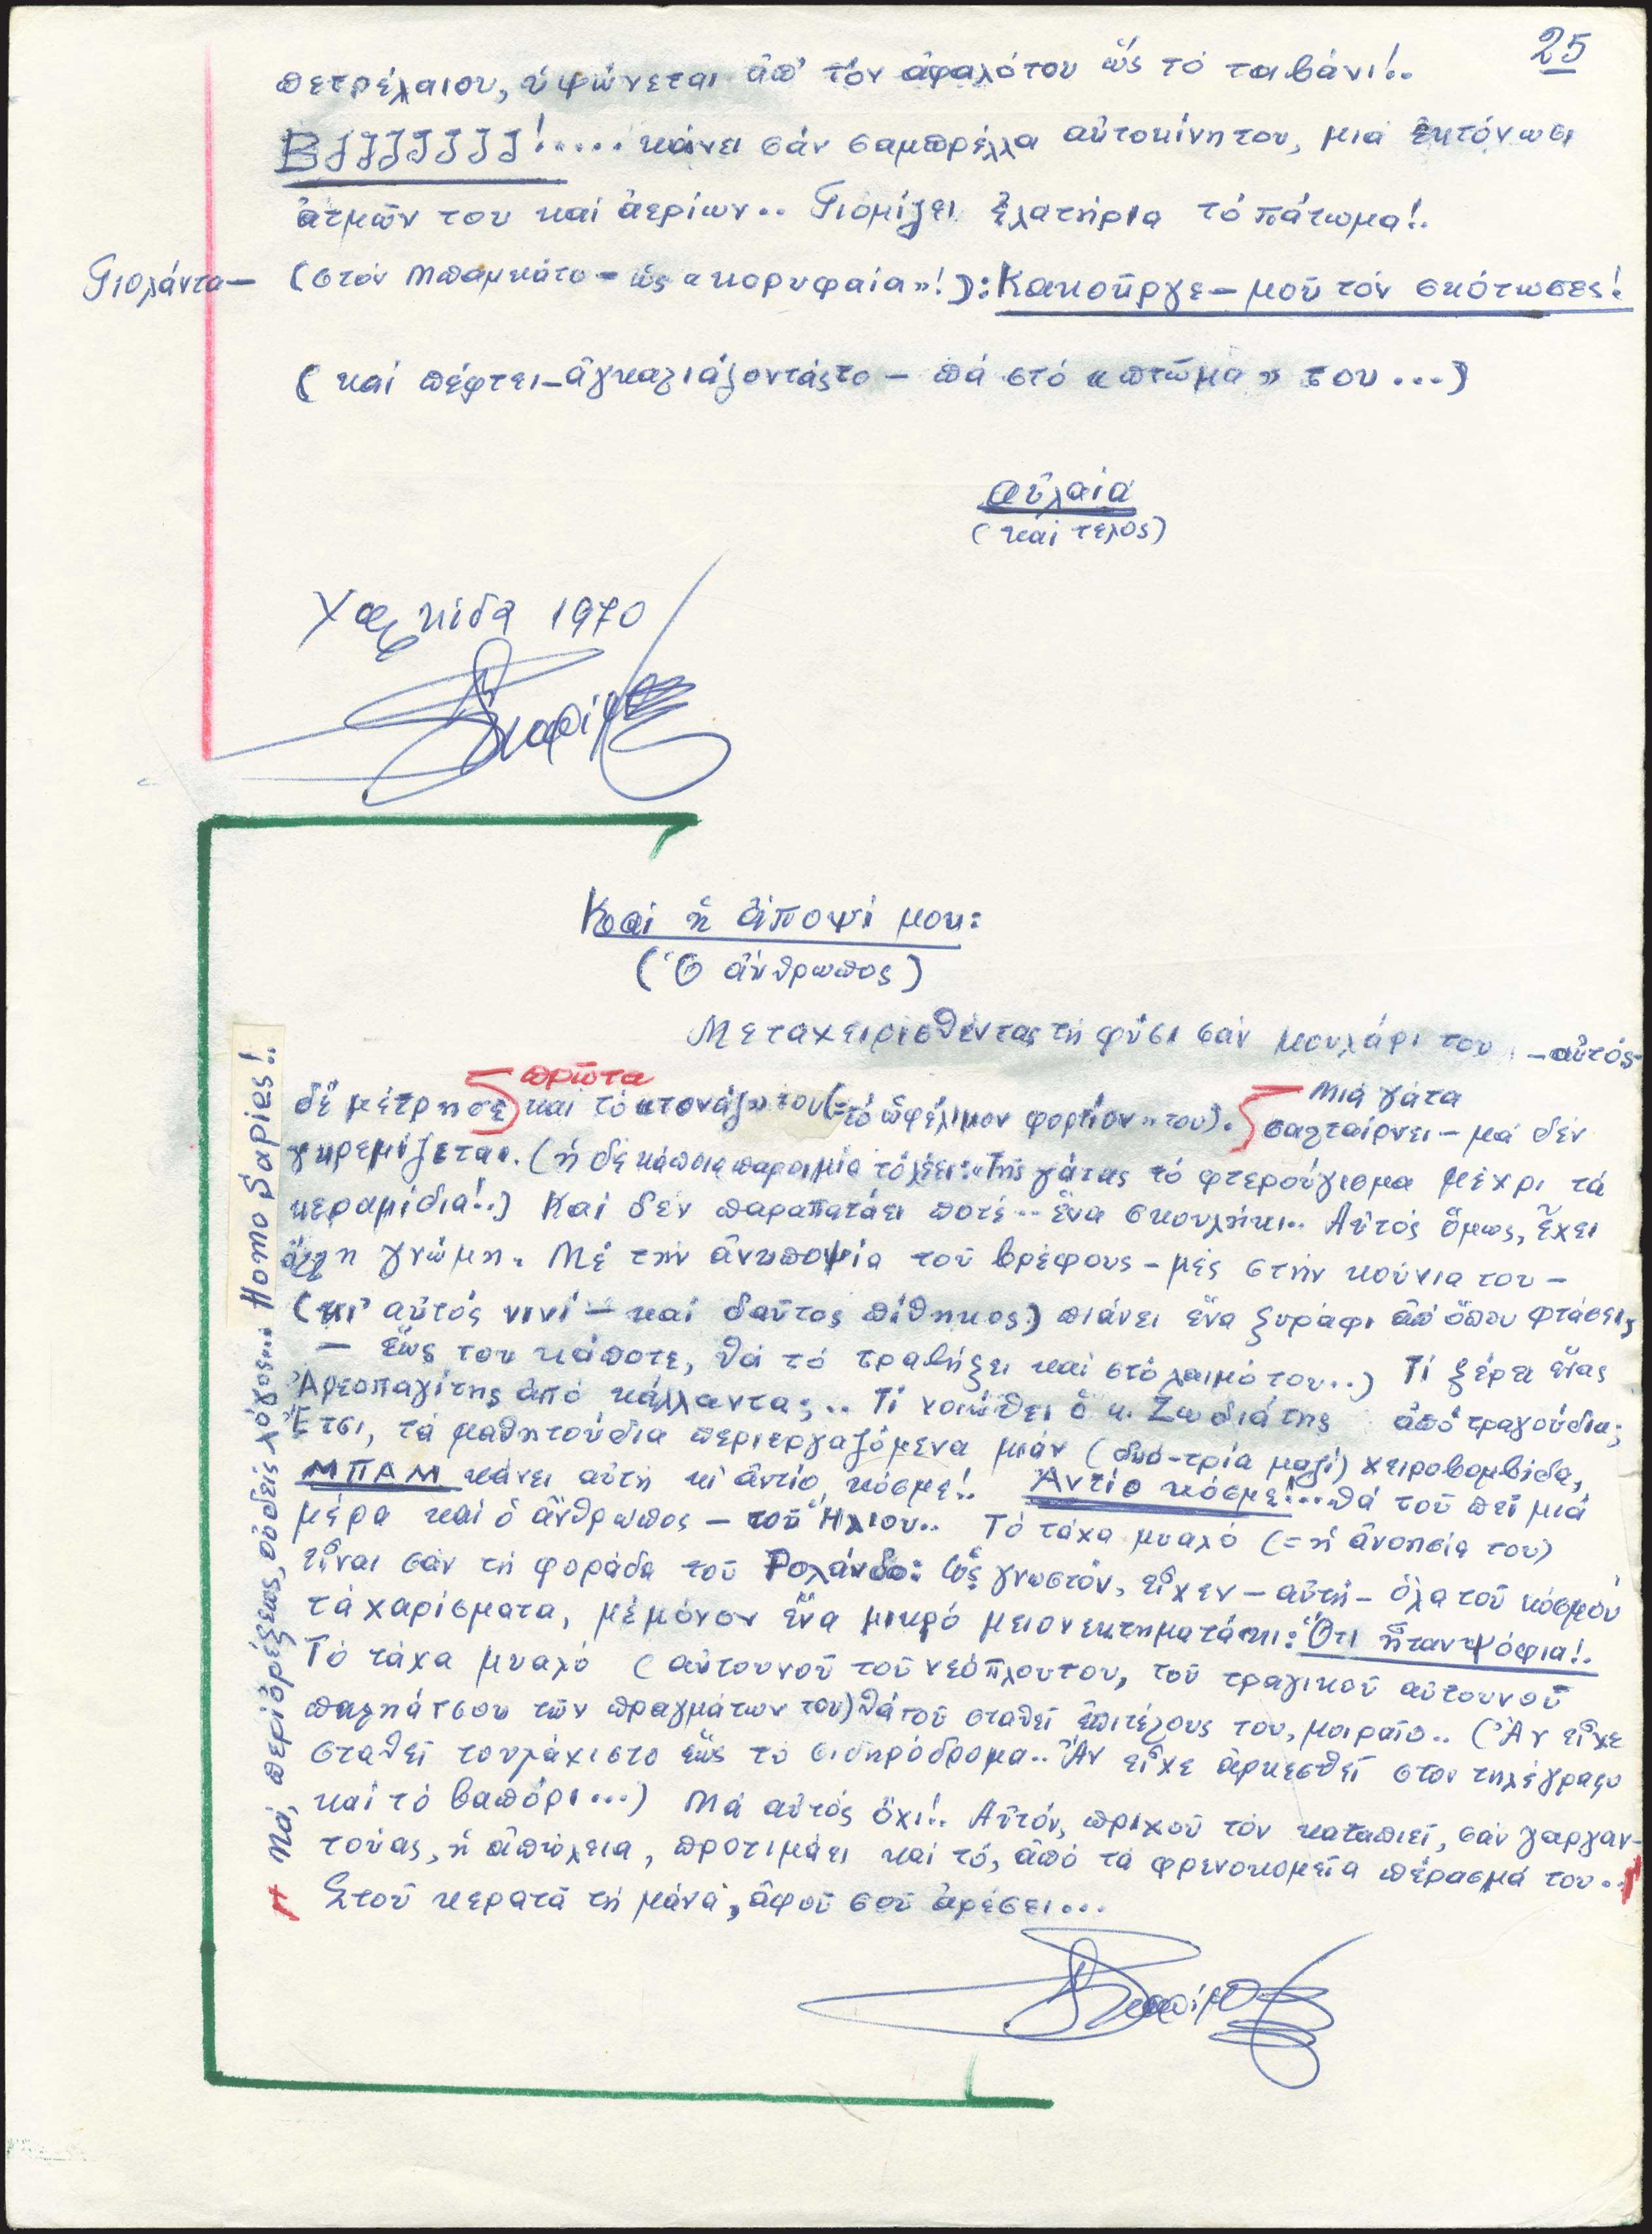 25
πετρέλαιου, ὑψώνεται ἀπ' τόν ἀφαλότου ὥς τό ταβάνι!.
ΒJJJJJJJ!..... κάνει σάν σαμπρέλλα αὐτοκίνητου, μιά ἐκτόνωσι
ἀτμῶν του καί ἀερίων.. Γιομίζει ἐλατήρια τό πάτωμα!.
Γιολάντα— (στόν Μπαμκάτο – ὡς «κορυφαία»!): Κακοῦργε – μοῦ τόν σκότωσες!
(καί πέφτει – ἀγκαλιάζοντάςτο – πά στό «πτῶμα» του...)
αὐλαία
(καί τέλος)
Χαλκίδα 1970
Σκαρίμπας
Καί ἡ ἄποψί μου:
(Ὁ ἄνθρωπος)
Μεταχειρισθέντας τή φύσι σάν μουλάρι του, – αὐτός –
δέ μέτρησε πρῶτα καί τό «τονάζ» του (= τό ὠφέλιμον φορτίον» του). Μιά γάτα
σαλταίρνει – μά δέν
γκρεμίζεται. (ἡ δέ κάποια παροιμία τό λέει: «Τῆς γάτας τό φτερούγισμα μέχρι τά
κεραμίδια!..) Καί δέν παραπατάει ποτέ... ἕνα σκουλήκι.. Αὐτός ὅμως, ἔχει
ἄλλη γνώμη. Μέ τήν ἀνυποψία τοῦ βρέφους – μές στήν κούνια του –
(κι' αὐτός νινί – καί δαῦτος πίθηκος) πιάνει ἕνα ξυράφι ἀπ' ὅπου φτάσει,
– ἕως του κάποτε, θά τό τραβήξει καί στό λαιμό του..) Τί ξέρει ἕνας
Ἀρεοπαγίτης ἀπό κάλλαντα;.. Τί νοιώθει ὁ κ. Ζωδιάτης ἀπό τραγούδια;
Ἔτσι, τά μαθητούδια περιεργαζόμενα μιάν (δυό-τρία μαζί) χειροβομβίδα,
ΜΠΑΜ κάνει αὐτή κι' ἀντίο, κόσμε!. Ἀντίο κόσμε!... θά τοῦ πεῖ μιά
μέρα καί ὁ ἄνθρωπος – τοῦ Ἥλιου.. Τό τάχα μυαλό (= ἡ ἀνοησία του)
εἶναι σάν τή φοράδα τοῦ Ρολάνδο: Ὡς γνωστόν, εἶχεν – αὐτή – ὅλα τοῦ κόσμου
τά χαρίσματα, μέ μόνον ἕνα μικρό μειονεκτηματάκι: Ὅτι ἦταν ψόφια!.
Τό τάχα μυαλό (αὐτουνοῦ τοῦ νεόπλουτου, τοῦ τραγικοῦ αὐτουνοῦ
παλιάτσου τῶν πραγμάτων του) θά τοῦ σταθεῖ ἐπιτέλους του, μοιραῖο.. (Ἄν εἶχε
σταθεῖ τουλάχιστο ἕως τό σιδηρόδρομα.. Ἄν εἶχε ἀρκεσθεῖ στόν τηλέγραφο
καί τό βαπόρι...) Μά αὐτός ὄχι!. Αὐτόν, πριχοῦ τόν καταπιεῖ, σάν γαργαν-
τούας, ἡ ἀπώλεια, προτιμάει καί τό, ἀπό τά φρενοκομεῖα πέρασμά του..
Στοῦ κερατᾶ τή μάνα, ἀφοῦ σοῦ ἀρέσει...
Σκαρίμπας
Μά, περί ὀρέξεως, οὐδείς λόγος... Homo Sapies!..